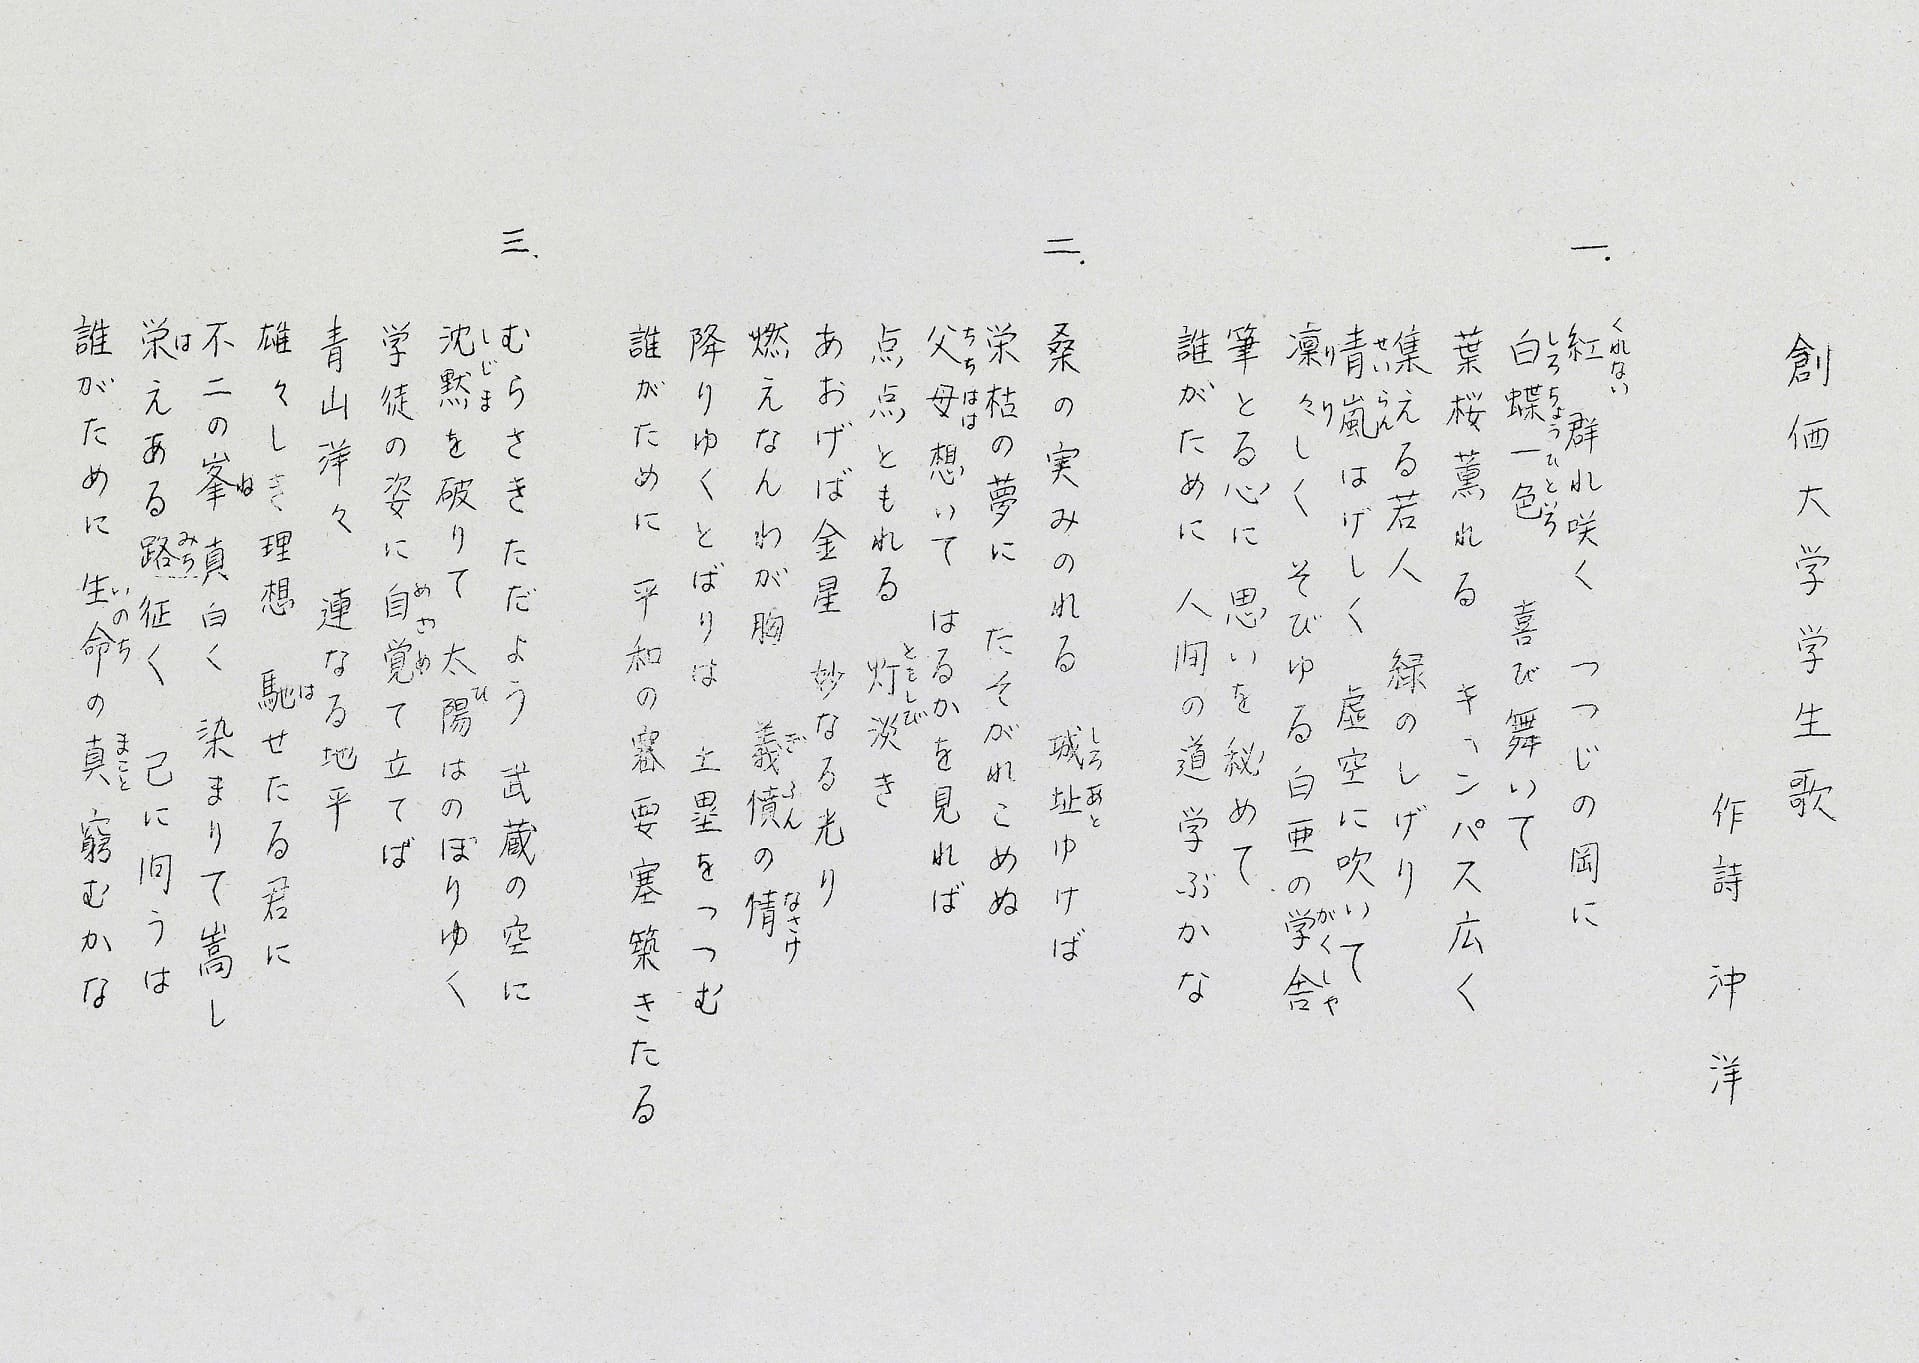 創価大学学生歌
作詩 沖洋
一.
紅 群れ咲く つつじの岡に
くれない
白蝶一色 喜び舞いて
しろちょうひといろ
葉桜薫れる キャンパス広く
集える若人 緑のしげり
青嵐はげしく 虚空に吹いて
せいらん
凛々しく そびゆる白亜の学舎
りり
がくしゃ
筆とる心に 思いを秘めて
誰がために 人間の道 学ぶかな
二.
桑の実みのれる 城址ゆけば
しろあと
栄枯の夢に たそがれこめぬ
父母想いて はるかを見れば
ちちはは
点点ともれる 灯淡き
ともしび
あおげば金星 妙なる光り
燃えなんわが胸 義憤の情
ぎふん
なさけ
降りゆくとばりは 土塁をつつむ
誰がために 平和の要塞築きたる
三、
むらさきただよう 武蔵の空に
沈黙を破りて 太陽はのぼりゆく
しじま
ひ
学徒の姿に 自覚て立てば
めざめ
青山洋々 連なる地平
雄々しき理想 馳せたる君に
は
不二の峯 真白く 染まりて嵩し
ね
栄えある路 征く 己に問うは
は
みち
誰がために 生命の真 窮むかな
いのち
まこと